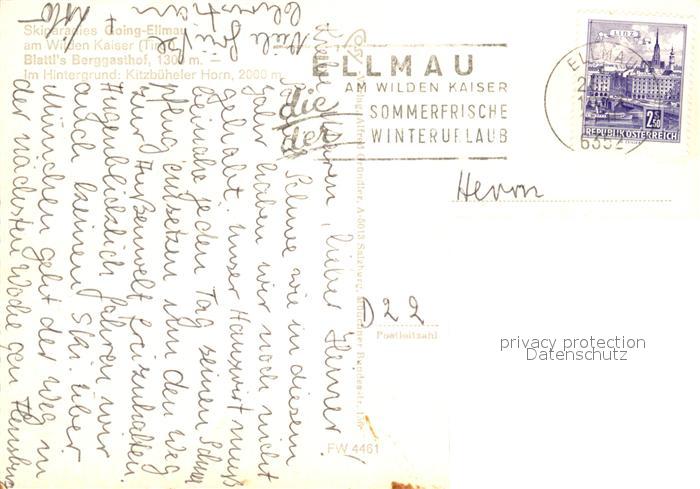 Skiparadies Going-Ellmau
am Wilden Kaiser (Tirol)
Blattl's Berggasthof, 1300 m.
Im Hintergrund: Kitzbüheler Horn, 2000 m.
ELLMAU
AM WILDEN KAISER
die SOMMERFRISCHE
der WINTERURLAUB
LINZ
2.50
REPUBLIK ÖSTERREICH
ELLMAU
6352
Herrn
D 22
Postleitzahl
privacy protection
Datenschutz
FW 4461
A-5013 Salzburg,
lieber Heiner!
Schnee wie in diesem
Jahr haben wir noch nicht
gehabt. Unser Hauswirt muß
beinahe jeden Tag seinen Schnee-
pflug einsetzen, ihm den Weg
zur Außenwelt freizuhalten.
Augenblicklich fahren wir
auch keinen Ski. Über
München geht der Weg in
der nächsten Woche gen Flensburg
Viele Grüße